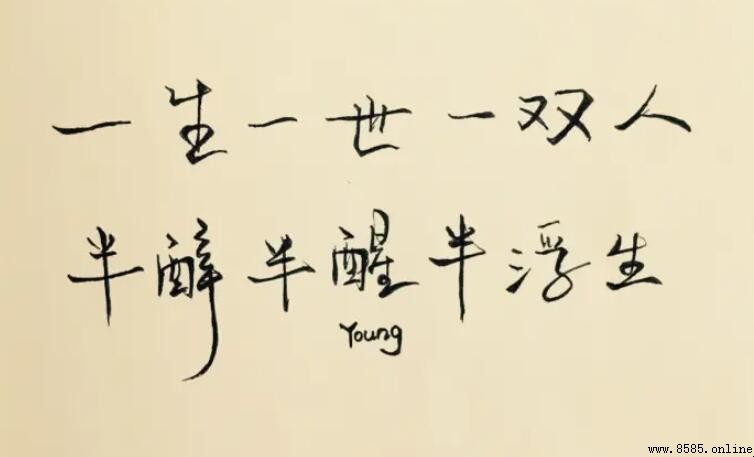 一生一世一双人
半醉半醒半浮生
Young
www.8585.online